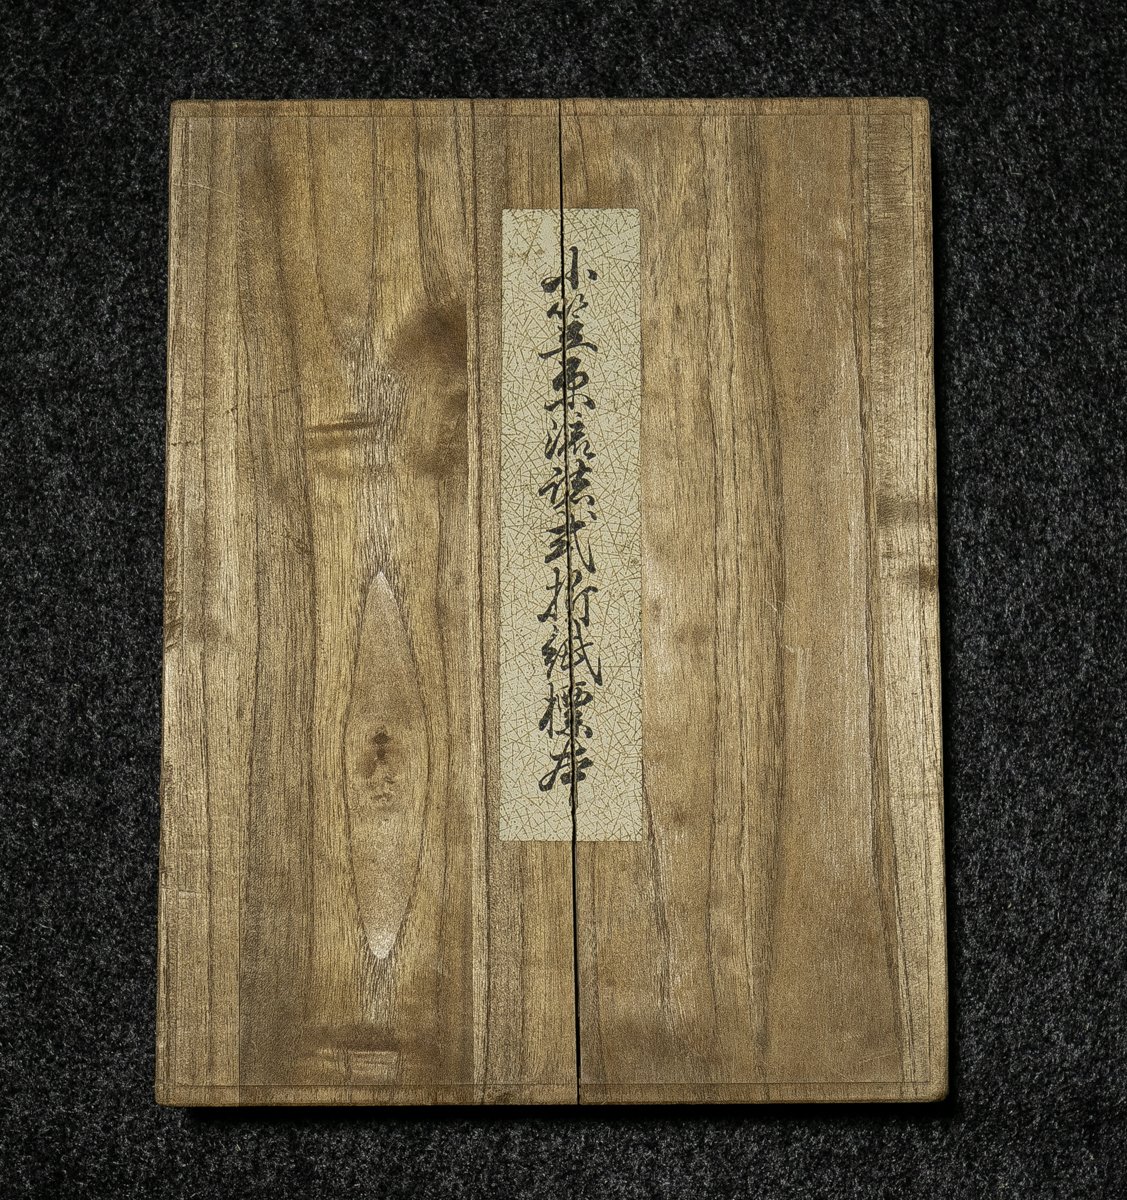 小笠原流諸式折紙標本